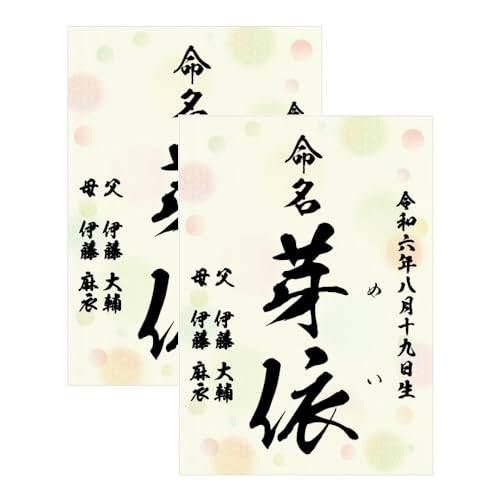 令和六年八月十九日生
命名
芽依
めい
父 伊藤 大輔
母 伊藤 麻衣
命名
芽依
父 伊藤 大輔
母 伊藤 麻衣